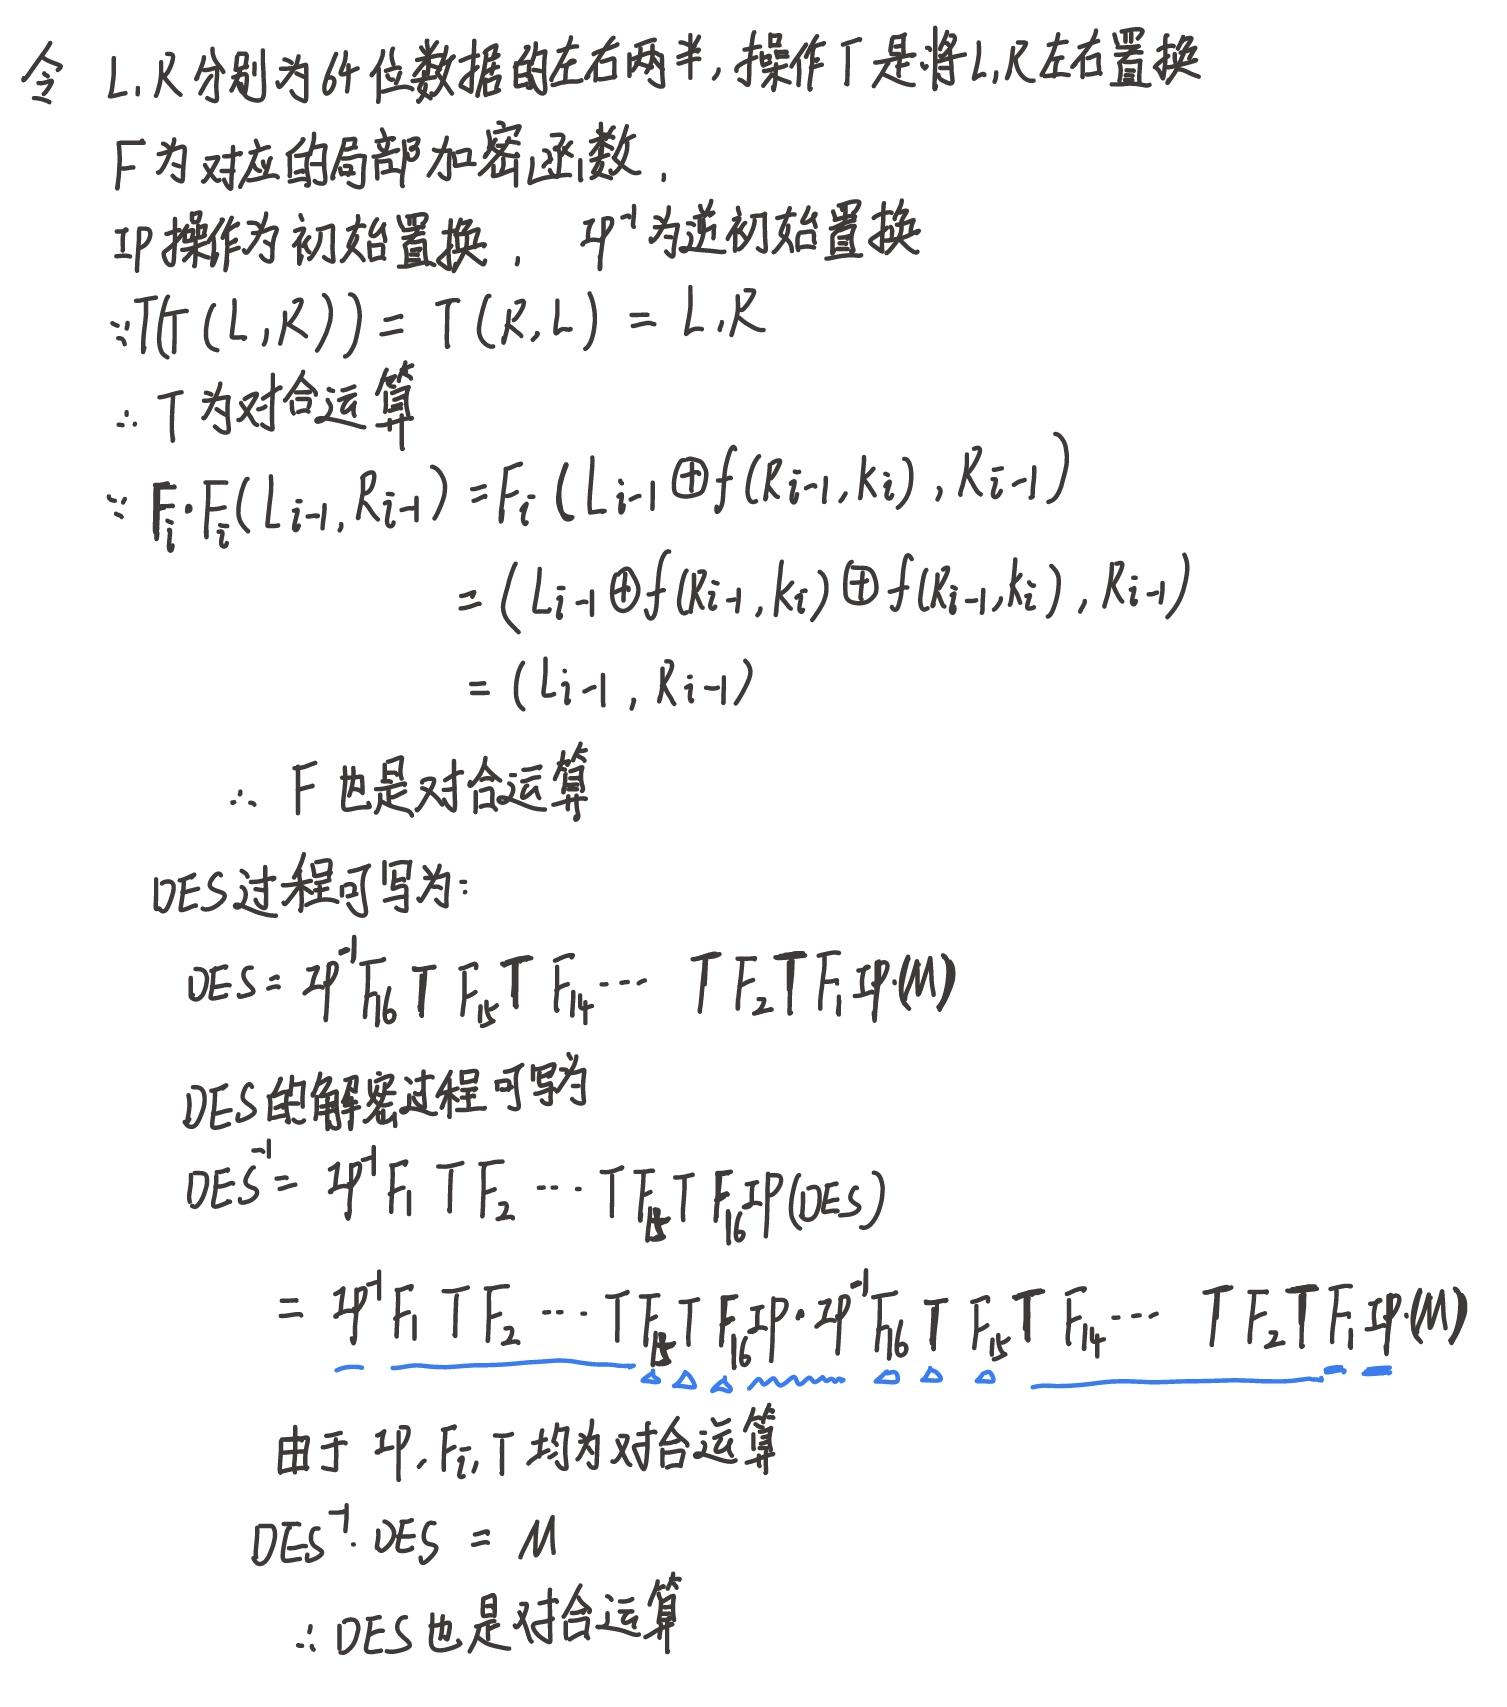 令 L,R分别为64位数据的左右两半,操作T是将L,R左右置换
F为对应的局部加密函数,
IP操作为初始置换, IP⁻¹为逆初始置换
∵T(T(L,R)) = T(R,L) = L,R
∴ T为对合运算
∵ Fᵢ·Fᵢ(Lᵢ₋₁,Rᵢ₋₁) = Fᵢ(Lᵢ₋₁⊕f(Rᵢ₋₁,kᵢ),Rᵢ₋₁)
= (Lᵢ₋₁⊕f(Rᵢ₋₁,kᵢ)⊕f(Rᵢ₋₁,kᵢ),Rᵢ₋₁)
= (Lᵢ₋₁,Rᵢ₋₁)
∴ F也是对合运算
DES过程可写为:
DES = IP⁻¹F₁₆TF₁₅TF₁₄··· TF₂TF₁IP·(M)
DES的解密过程可写为
DES⁻¹ = IP⁻¹F₁TF₂···TF₁₅TF₁₆IP(DES)
= IP⁻¹F₁TF₂···TF₁₅TF₁₆IP·IP⁻¹F₁₆TF₁₅TF₁₄··· TF₂TF₁IP·(M)
由于 IP,Fᵢ,T均为对合运算
DES⁻¹·DES = M
∴DES也是对合运算